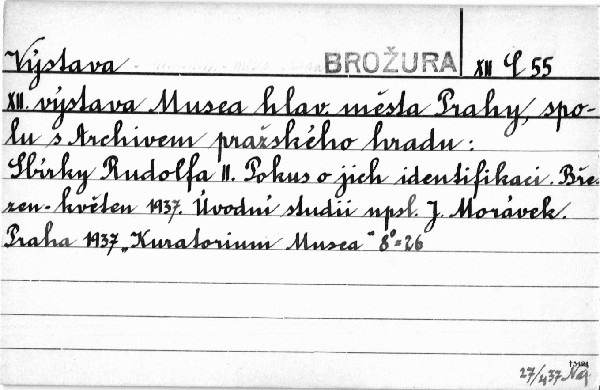 Výstava BROŽURA XII S 55
XII. výstava Musea hlav. města Prahy, spo-
lu s Archivem pražského hradu:
Sbírky Rudolfa II. Pokus o jich identifikaci. Bře-
zen-květen 1937. Úvodní studii npsl. J. Morávek.
Praha 1937 „Kuratorium Musea" 8°=26
27/437